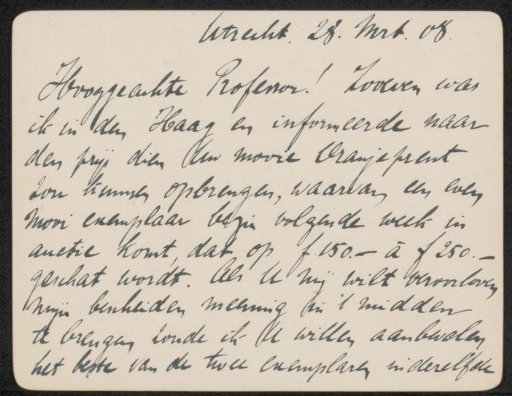 Utrecht. 28. Mrt. 08.
Hooggeachte Professor! Zooeven was
ik in den Haag en informeerde naar
den prijs dien Uw mooie Oranjeprent
zou kunnen opbrengen, waarvan een even
mooi exemplaar begin volgende week in
auctie komt, dat op f 150.- à f 250.-
geschat wordt. Als U mij wilt veroorloven
mijn bescheiden meening in 't midden
te brengen zoude ik U willen aanbevelen
het beste van de twee exemplaren in dezelfde